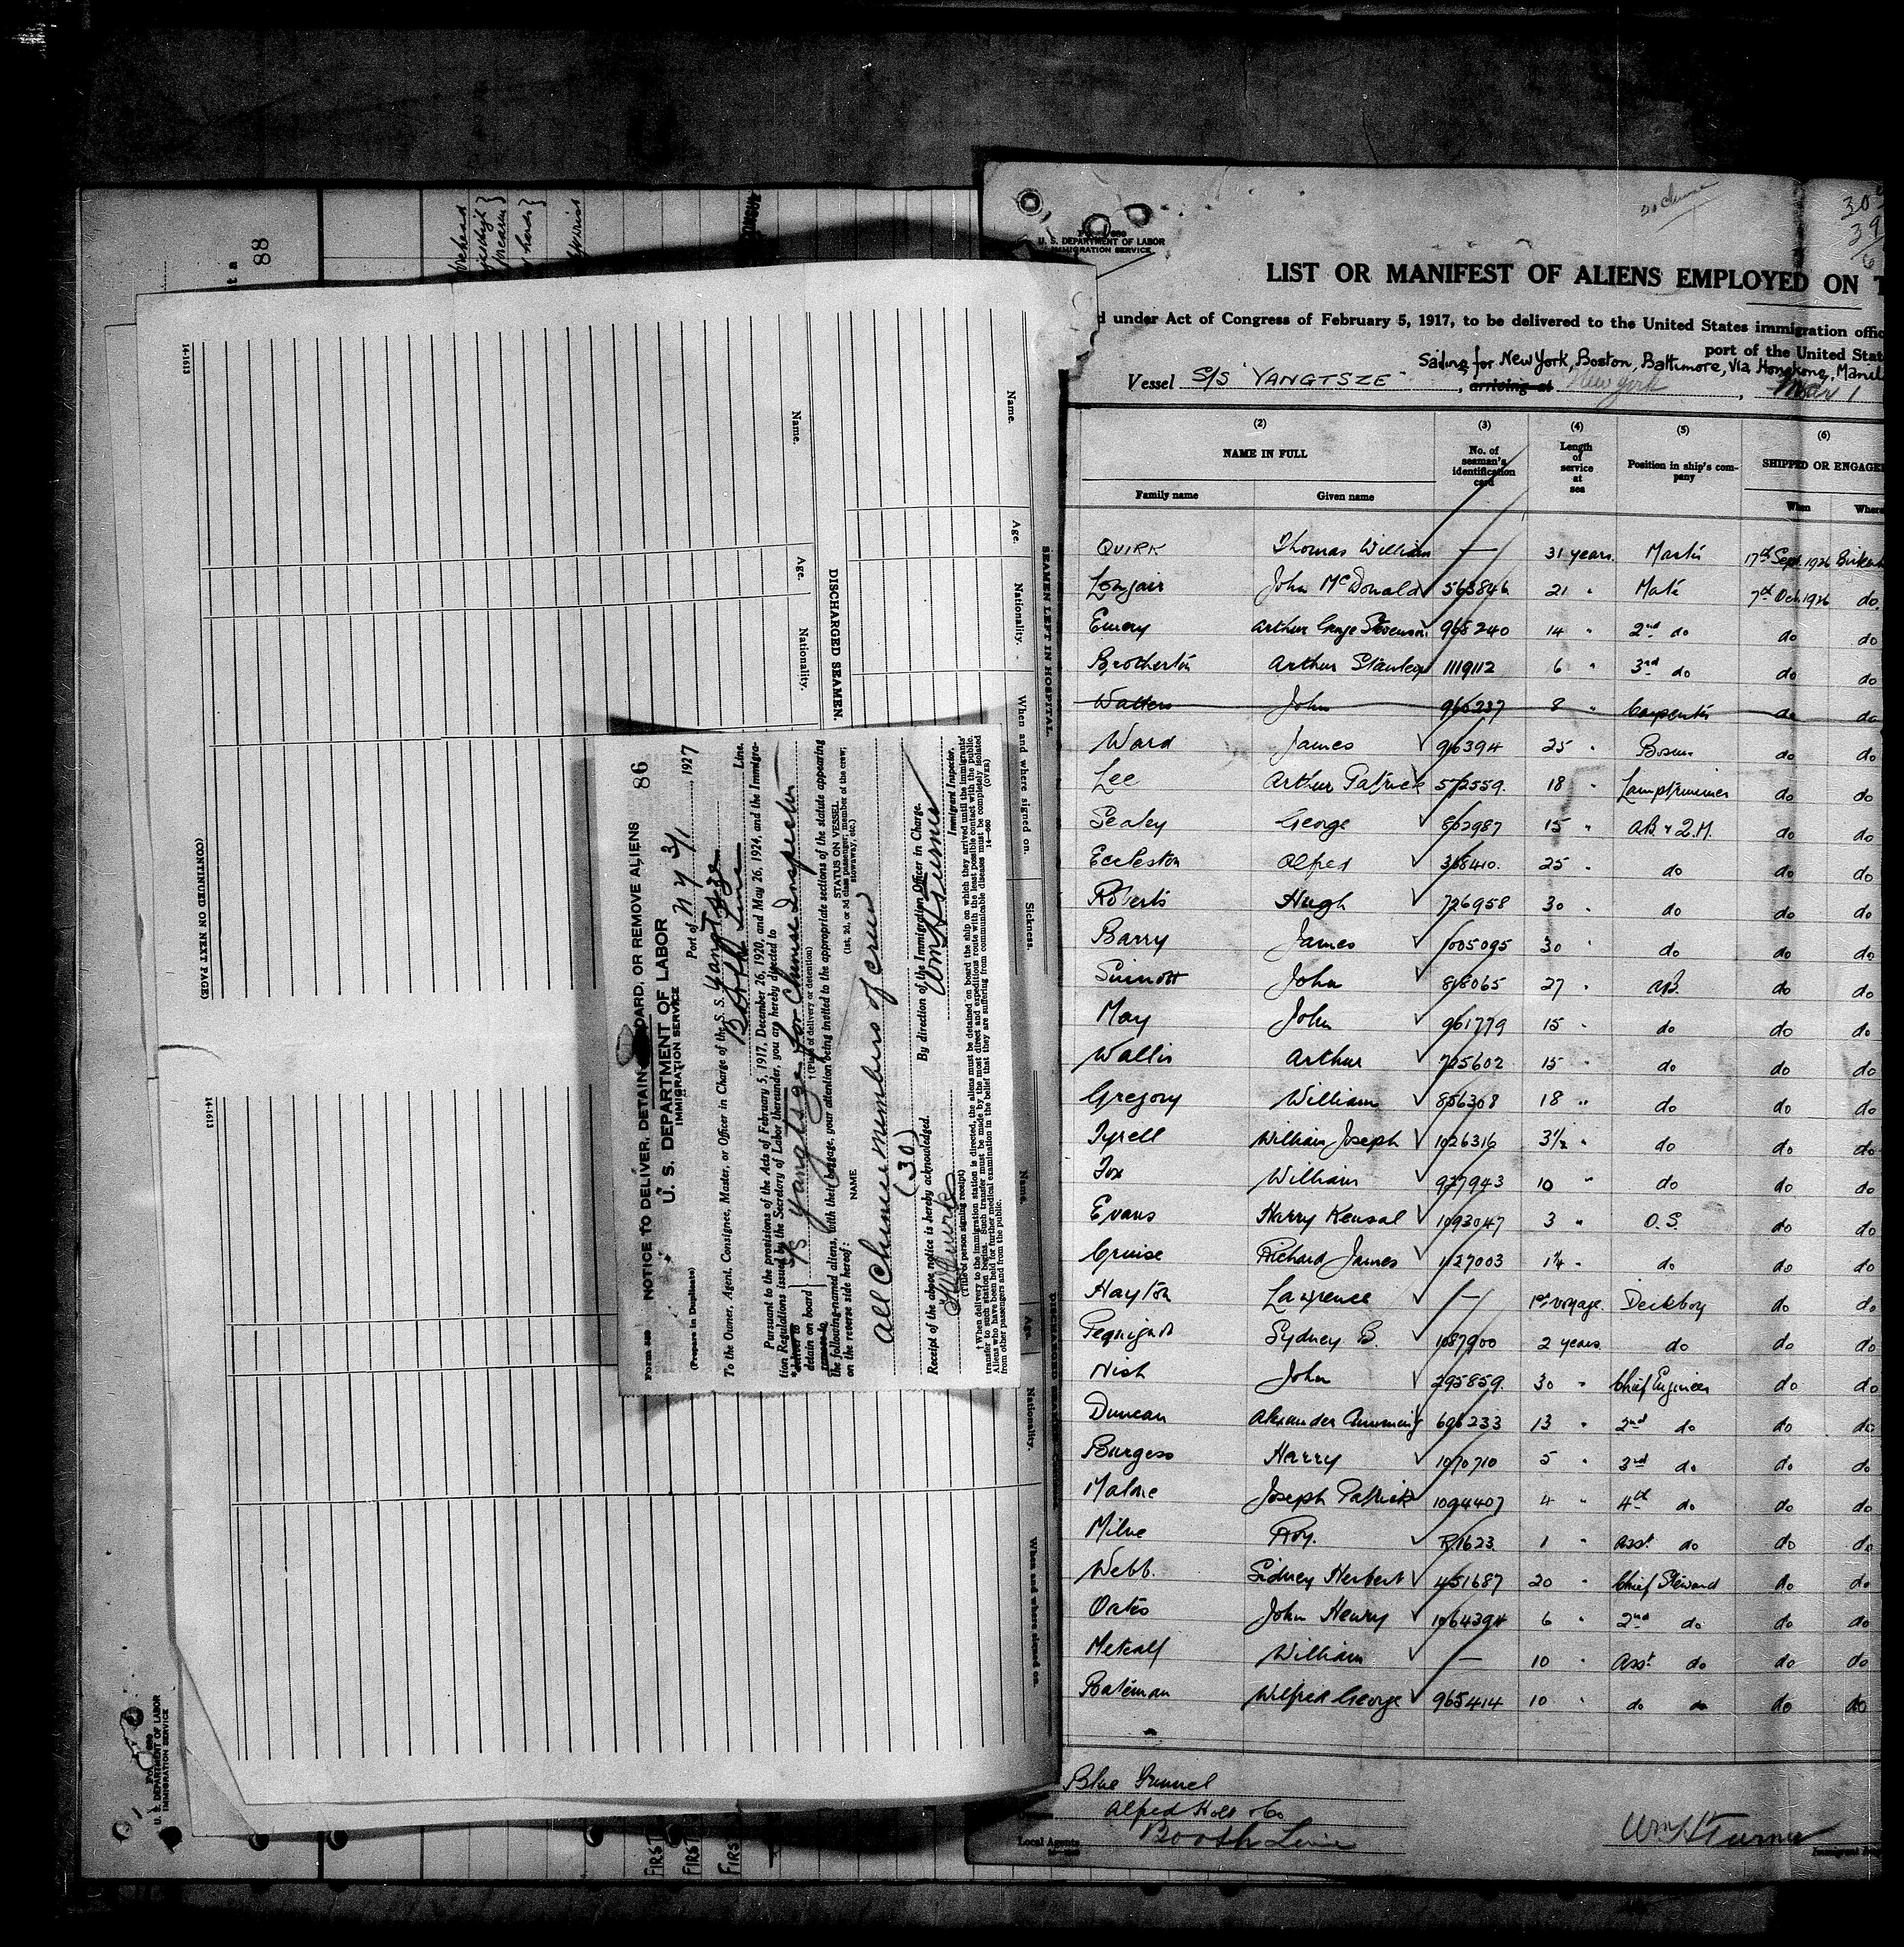 88
14-1613
Name.
Age.
Nationality.
DISCHARGED SEAMEN.
Name.
Age.
Nationality.
When and where signed on.
Sickness.
SEAMEN LEFT IN HOSPITAL.
(CONTINUED ON NEXT PAGE)
14-1613
Name.
Age.
Nationality.
When and where signed on.
U. S. DEPARTMENT OF LABOR
IMMIGRATION SERVICE
FIRST
FIRST
FIRST
86
NOTICE TO DELIVER, DETAIN ON BOARD, OR REMOVE ALIENS
U. S. DEPARTMENT OF LABOR
IMMIGRATION SERVICE
(Prepare in Duplicate)
Port of N Y 3/1, 1927
To the Owner, Agent, Consignee, Master, or Officer in Charge of the S. S. Yangtsze
Booth Line Line.
Pursuant to the provisions of the Acts of February 5, 1917, December 26, 1920, and May 26, 1924, and the Immigra-
tion Regulations issued by the Secretary of Labor thereunder, you are hereby directed to
* deliver to
detain on board S/S Yangtsze for Chinese Inspector
remove to
† (Place of delivery or detention)
the following-named aliens, with their baggage, your attention being invited to the appropriate sections of the statute appearing
on the reverse side hereof:
NAME
STATUS ON VESSEL
(1st, 2d, or 3d class passenger; member of the crew;
stowaway, etc.)
All Chinese members of crew
(30)
Receipt of the above notice is hereby acknowledged.
By direction of the Immigration Officer in Charge.
Wm H Turner
Immigrant Inspector.
(Title of person signing receipt)
† When delivery to the immigration station is directed, the aliens must be detained on board the ship on which they arrived until the immigrants'
transfer to such station begins. Such transfer must be made by the most direct and expeditious route with the least possible contact with the public.
Aliens who have been held for further medical examination in the belief that they are suffering from communicable diseases must be completely isolated
from other passengers and from the public.
14-660
(OVER)
U. S. DEPARTMENT OF LABOR
IMMIGRATION SERVICE
30 Chinese
LIST OR MANIFEST OF ALIENS EMPLOYED ON T
d under Act of Congress of February 5, 1917, to be delivered to the United States immigration offic
port of the United Stat
Sailing for New York, Boston, Baltimore, Via Hongkong, Manil
Vessel S/S "YANGTSZE", arriving at New York, Mar 1
(2) (3) (4) (5) (6)
NAME IN FULL
No. of seaman's identification card
Length of service at sea
Position in ship's company
SHIPPED OR ENGAGE
Family name Given name When Where
QUIRK Thomas William — 31 years. Master 17th Sept. 1926 Birkenh
Longair John McDonald 563846 21 " Mate 7th Oct. 1926 do.
Emery Arthur George Stevenson 965240 14 " 2nd do do do
Brotherton Arthur Stanley 1119112 6 " 3rd do do do
Watters John 966237 8 " Carpenter do do
Ward James 916394 25 " Bosun do do
Lee Arthur Patrick 572559. 18 " Lamptrimmer do do
Sealey George 802987 15 " AB & Q.M. do do
Eccleston Alfred 368410. 25 " do do do
Roberts Hugh 726958 30 " do do do
Barry James 1005095 30 " do do do
Sinnott John 818065 27 " AB. do do
May John 961779 15 " do do do
Wallis Arthur 725602 15 " do do do
Gregory William 856308 18 " do do do
Tyrell William Joseph 1026316 3½ " do do do
Fox William 927943 10 " do do do
Evans Harry Kensal 1093047 3 " O.S. do do
Cruise Richard James 1127003 1¼ " do do do
Hayton Lawrence — 1st voyage. Deckboy do do
Sydney B. 1087900 2 years. do do do
Nish John 295859. 30 " Chief Engineer do do
Duncan Alexander Cumming 696233 13 " 2nd do do do
Burgess Harry 1070710 5 " 3rd do do do
Malone Joseph Patrick 1094407 4 " 4th do do do
Milne Roy. R.1623. 1 " Asst. do do do
Webb. Sidney Herbert 451687 20 " Chief Steward do do
Oates John Henry 1064394 6 " 2nd do do do
Metcalf William — 10 " Asst do do do
Bateman Wilfred George 965414 10 " do do do do
Blue Funnel
Alfred Holt & Co
Local Agents Booth Line
Wm H Turner